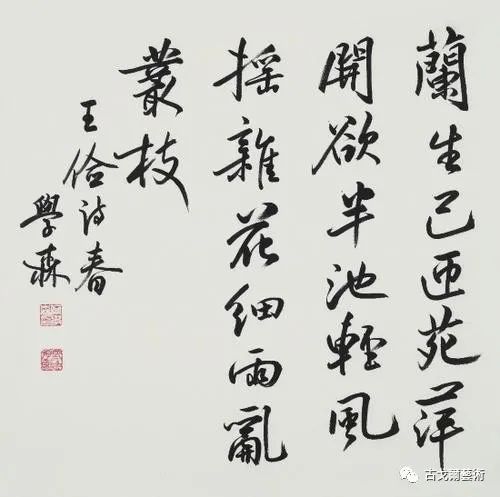 蘭生已匝苑萍
開欲半池輕風
搖雜花細雨亂
叢枝
王儉詩春
學森
古戈爾藝術